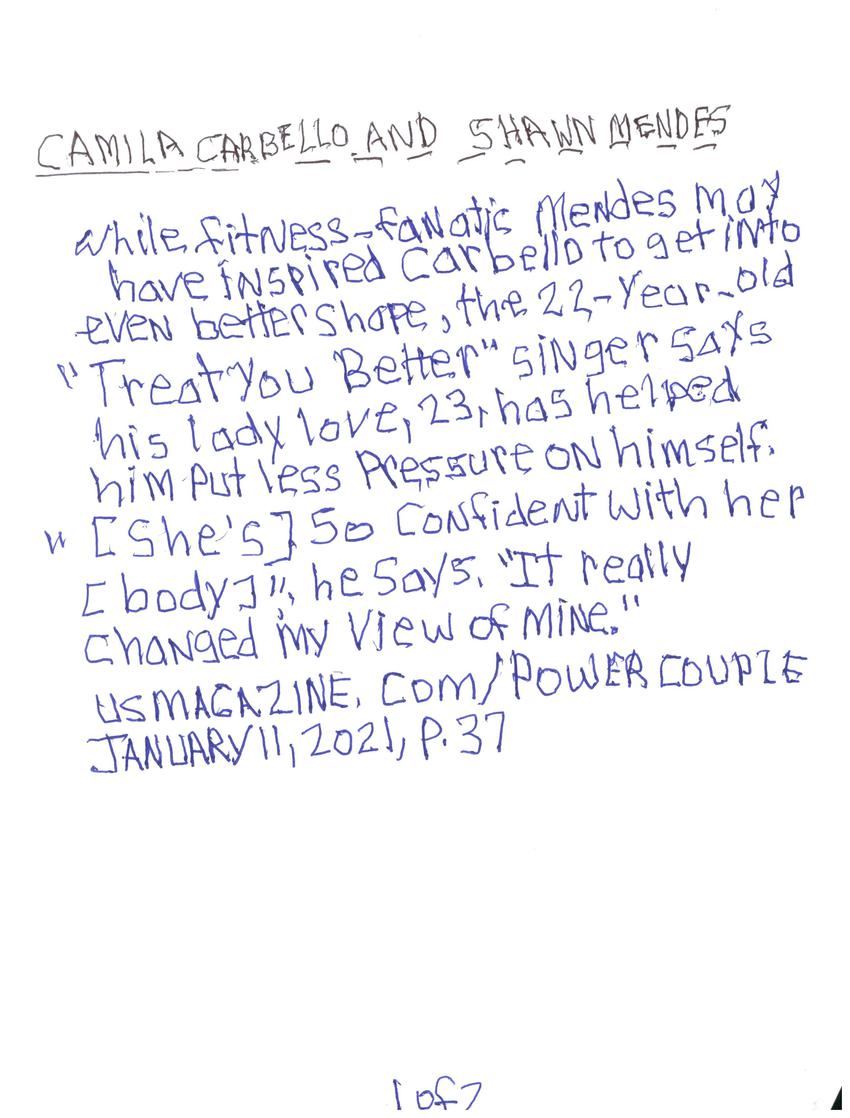 CAMILA CARBELLO AND SHAWN MENDES
while fitness-fanatic Mendes may
have inspired Carbello to get into
even better shape, the 22-year-old
"Treat You Better" singer says
his lady love, 23, has helped
him put less pressure on himself.
"[She's] So Confident with her
[body]", he says. "It really
changed my view of mine."
USMAGAZINE.COM/POWERCOUPLE
JANUARY 11, 2021, P.37
1 of 2